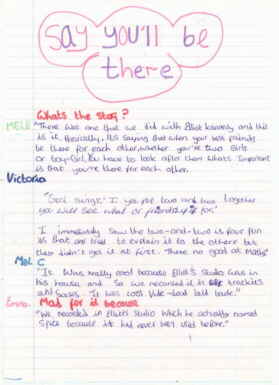 Say you'll be
there
Whats the story?
MEL B "There was one that we did with Elliot Kennedy and this
is it. Basically, it's saying that when your best friends
be there for each other, whether you're two girls
or boy-Girl, You have to look after them Whats Important
is that you're there for each other.
Victoria
"Geri sung "If you put two and two together
you will see what our friendship is for."
I immediately saw the two-and-two is four pun
is that and tried to explain it to the others but
they didn't get it at first. There no good at Maths"
Mel C
"It was really good because Elliot's Studio was in
his house and So we recorded it in trackies
and Socks. It was cool Vibe-laid laid back."
Emma. Mad for it because
"We recorded in Elliott Studio which he actually named
Spice because it had never been used before."